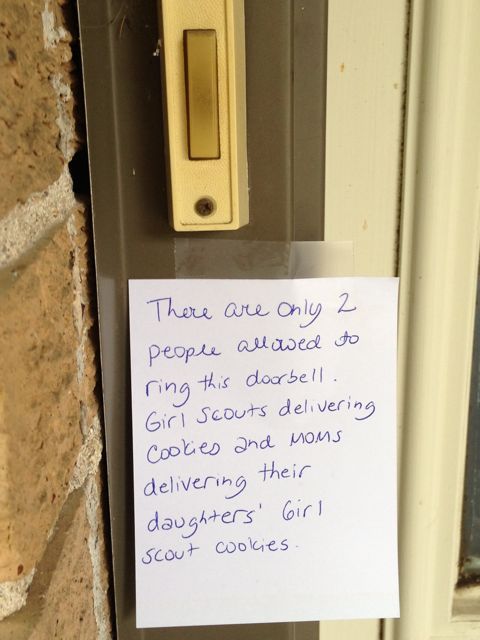 There are only 2
people allowed to
ring this doorbell.
Girl Scouts delivering
Cookies and MOMS
delivering their
daughters' Girl
scout cookies.